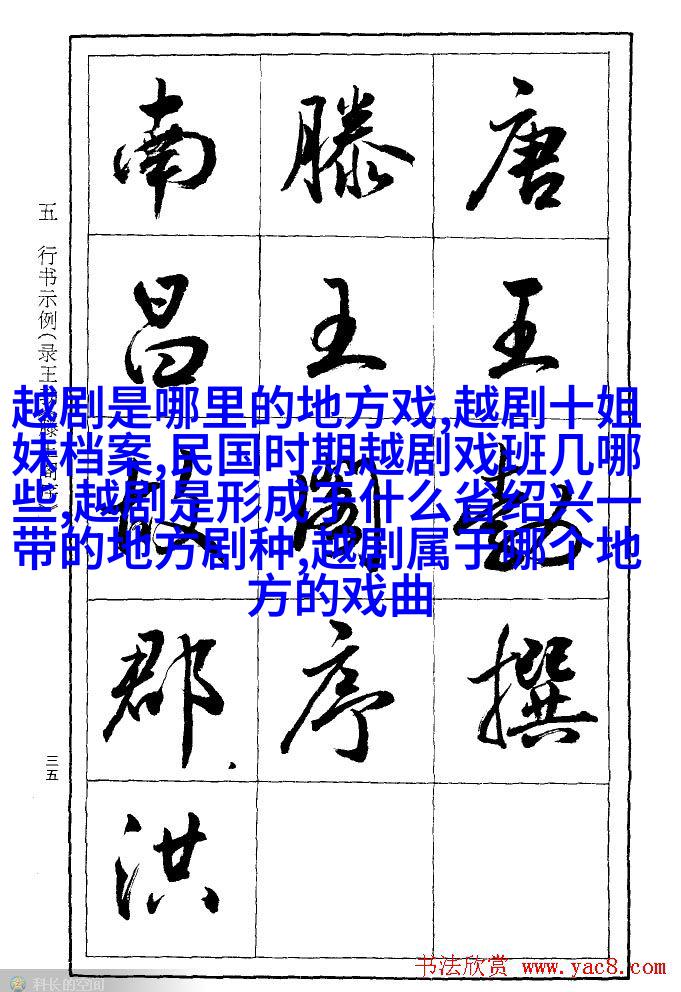 越剧是哪里的地方戏,越剧十姐
妹档案,民国时期越剧戏班几哪
些,越剧是形成于什么省绍兴一
带的地方剧种,越剧属于哪个地
方的戏曲
唐王勃撰
滕王阁序
南昌故郡洪
五 行书示例(录王
三五
书法欣赏 www.yac8.com
科长的空间